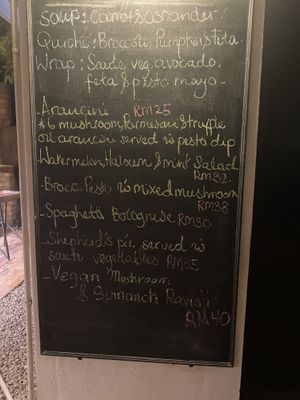 Soup: Carrot & Coriander.
Quiche: Broccoli, Pumpkin & Feta
Wrap: Saute veg, avocado,
feta & pesto mayo.
- Arancini RM25
*6 mushroom, Parmesan & truffle
oil arancini served w pesto dip
Watermelon, Haloumi & mint Salad
RM32
- Brocc. Pesto w mixed mushroom
RM38
- Spaghetti Bolognese RM30
- Shepherd's pie, served w
saute vegetables RM35
- Vegan Mushroom
& Ravioli
RM40